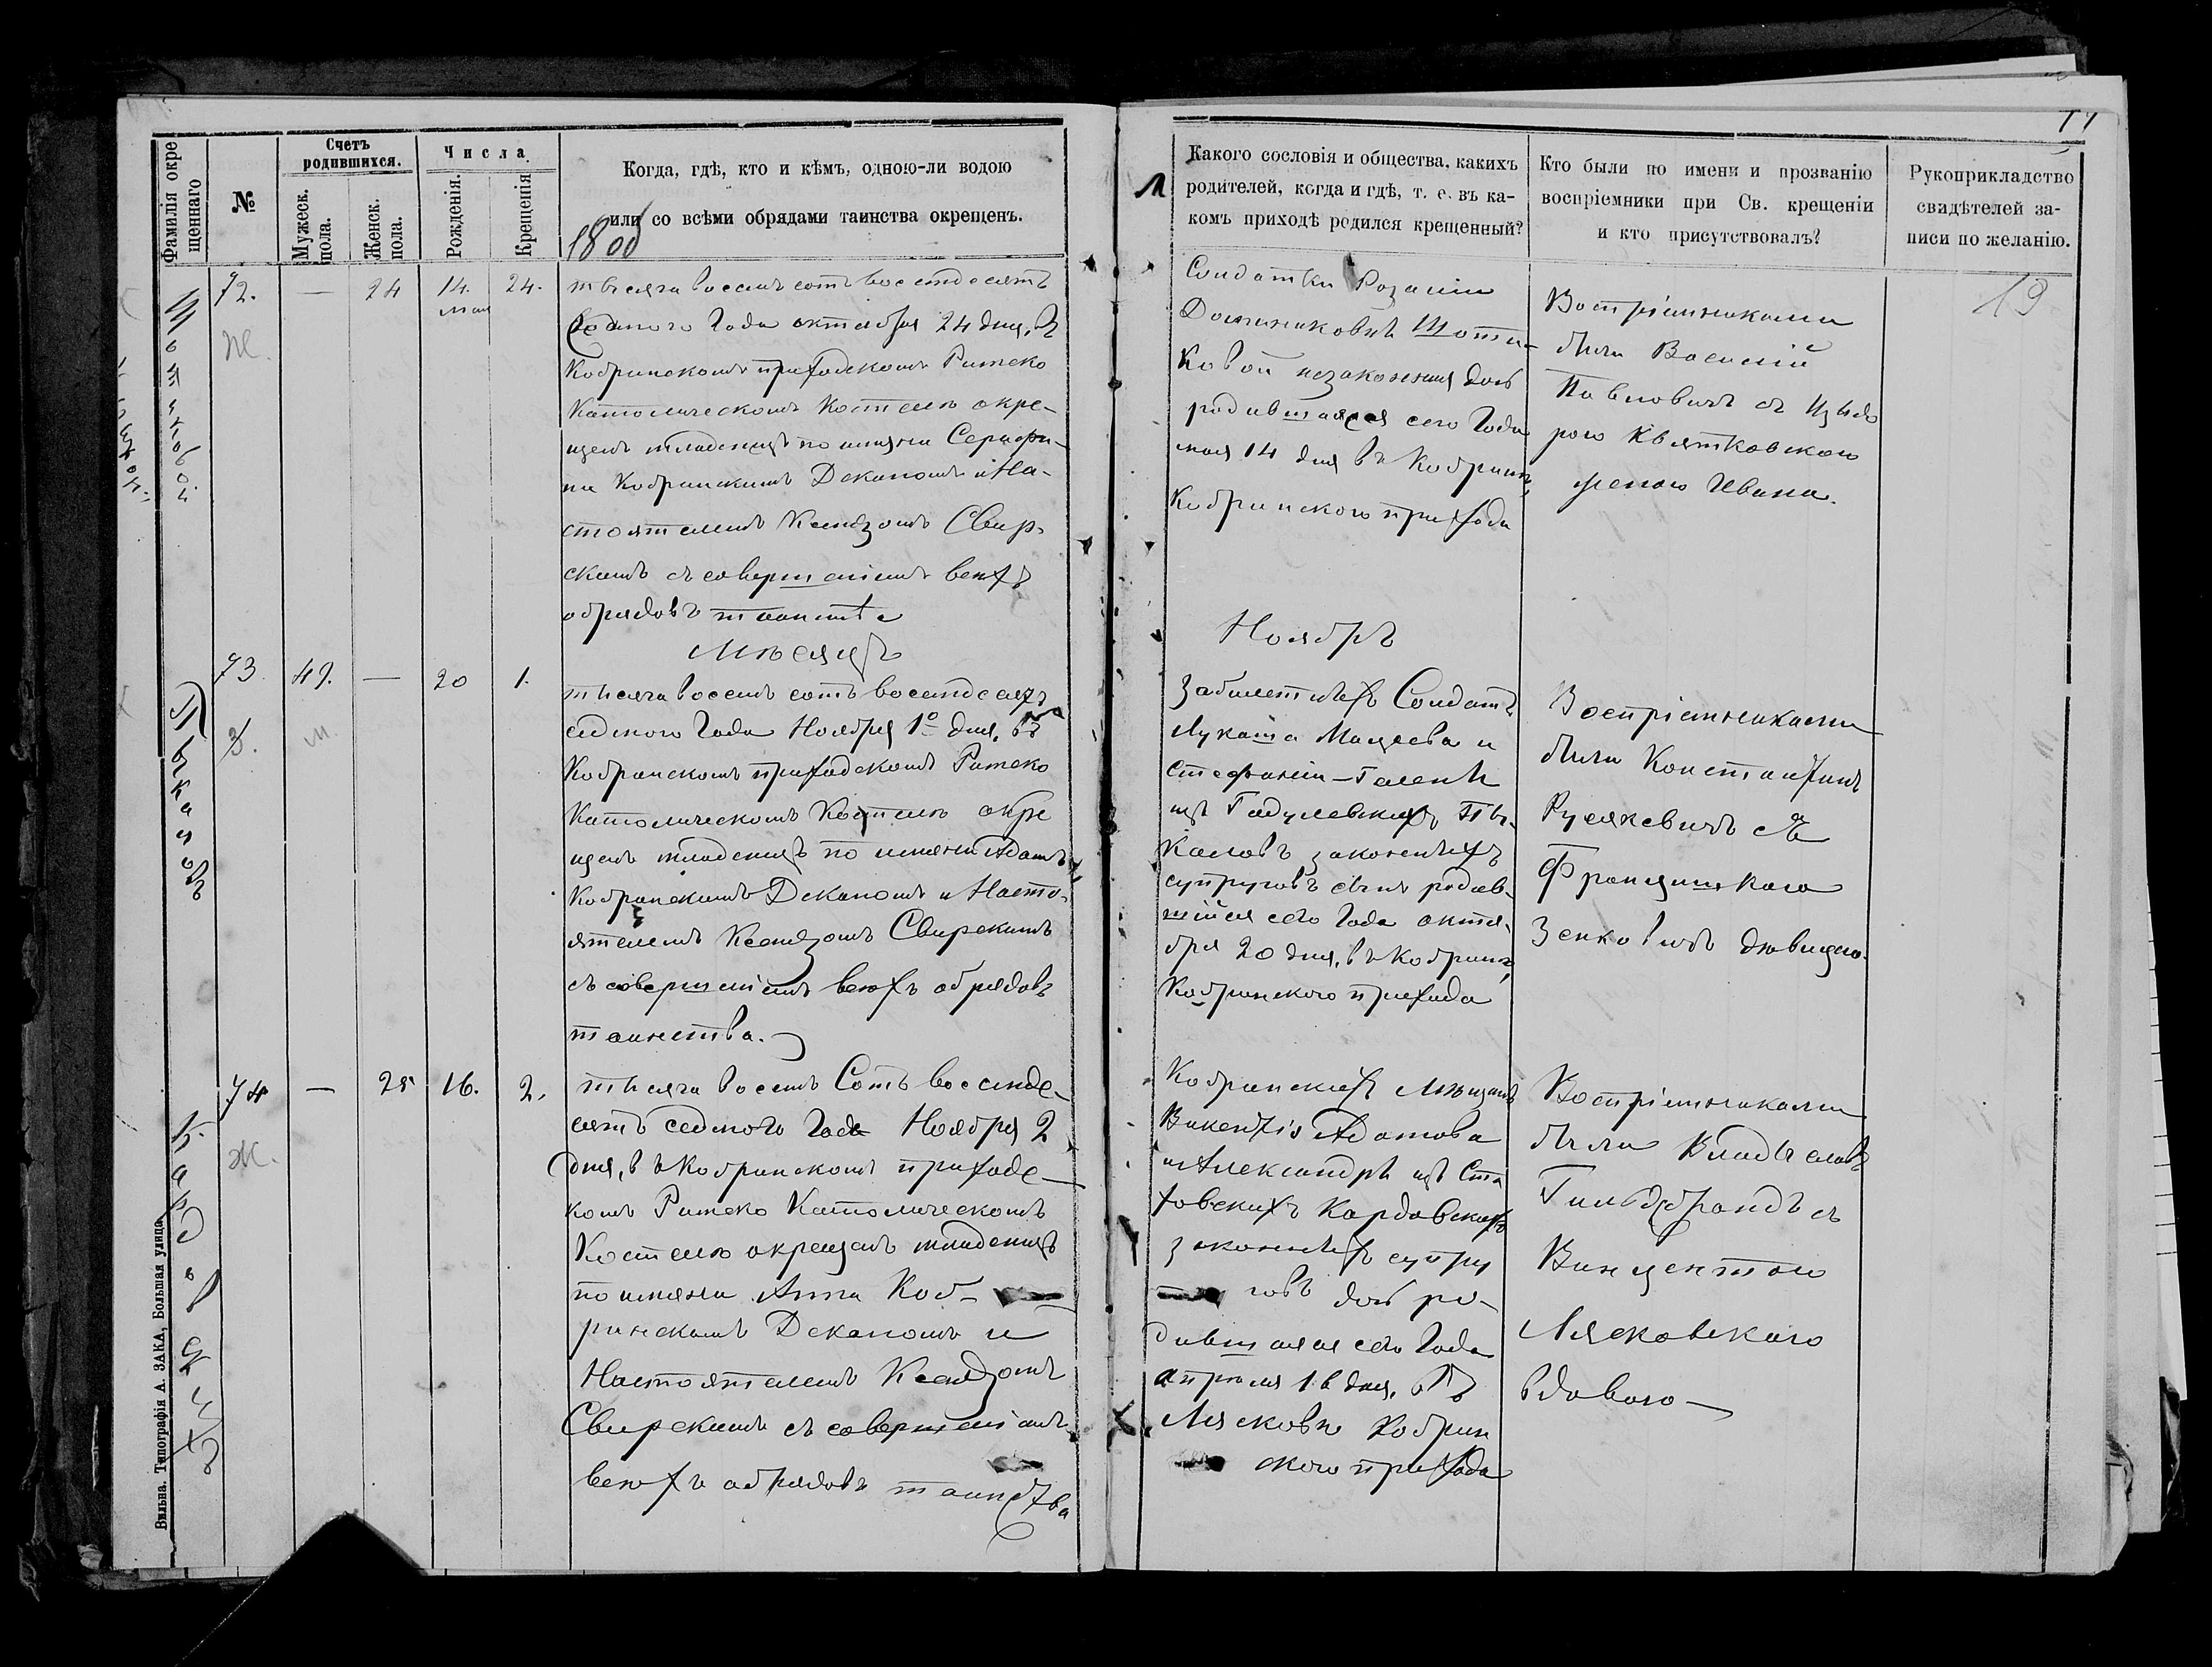 19
Фамилія окре
щеннаго
№
Счетъ
родившихся.
Мужеск.
пола.
Женск.
пола.
Числа
Рожденія.
Крещенія
Когда, гдѣ, кто и кѣмъ, одною-ли водою
или со всѣми обрядами таинства окрещенъ.
1800
72.
Ж.
—
24
14.
мая
24.
тысяча восемь сотъ восемдесятъ
седмого Года октября 24 дня, въ
Кобринскомъ приходскомъ Римско
Католическомъ Костелѣ окре-
щенъ младенецъ по имяни Серафи-
на Кобринскимъ Деканомъ и На-
стоятелемъ Ксендзомъ Свир-
скимъ съ совершеніемъ всѣхъ
обрядовъ таинства
Мѣсяцъ
73.
3.
49.
м.
—
20
1.
Пыкаловъ
тысяча восемь сотъ восемдесятъ
седмого Года Ноября 1º дня, въ
Кобринскомъ приходскомъ Римско
Католическомъ Костелѣ окре
щенъ младенецъ по имяни Адамъ
Кобринскимъ Деканомъ и Насто-
ятелемъ Ксендзомъ Свирскимъ
съ совершеніемъ всѣхъ обрядовъ
таинства.
74
Ж.
—
25
16.
2.
Кардовскихъ
тысяча восемь Сотъ восемде-
сятъ седмого Года Ноября 2
дня, въ Кобринскомъ приходс-
комъ Римско Католическомъ
Костелѣ окрещенъ младенецъ
по имяни Анна Коб-
ринскимъ Деканомъ и
Настоятелемъ Ксендзомъ
Свирскимъ съ совершеніемъ
всѣхъ обрядовъ таинства
Вильна. Типографія А. ЗАКА, Большая улица
Какого сословія и общества, какихъ
родителей, когда и гдѣ, т. е. въ ка-
комъ приходѣ родился крещенный?
Кто были по имени и прозванію
воспріемники при Св. крещеніи
и кто присутствовалъ?
Рукоприкладство
свидѣтелей за-
писи по желанію.
Солдатки Розаліи
Доминиковны Шоти-
ковой незаконная дочь
родившаяся сего Года
мая 14 дня въ Кобринѣ,
Кобринского прихода
Воспріемниками
были Василій
Павловичъ съ
Квятковскою
женою Ивана.
19
Ноябрь
Забилетныхъ Солдатъ
Лукаша Мацеева и
Стефаніи-Гелены
изъ Гадулевскихъ Пы-
каловъ законныхъ
супруговъ сынъ родив-
шійся сего Года октя-
бря 20 дня, въ Кобринѣ,
Кобринского прихода
Воспріемниками
были Константинъ
Русякевичъ съ
Францишкою
Зенковичъ дювицею.
Кобринскихъ Мющанъ
Викентія Адамова
и Александры изъ Ста
ховскихъ Кардовскихъ
законныхъ супру
говъ дочь ро-
дившаяся сего Года
апрѣля 16 дня, въ
Лясковѣ Кобрин
ского прихода
Воспріемниками
были Владыславъ
Гильдебрандъ съ
Винцентою
Лясковскою
вдовою —